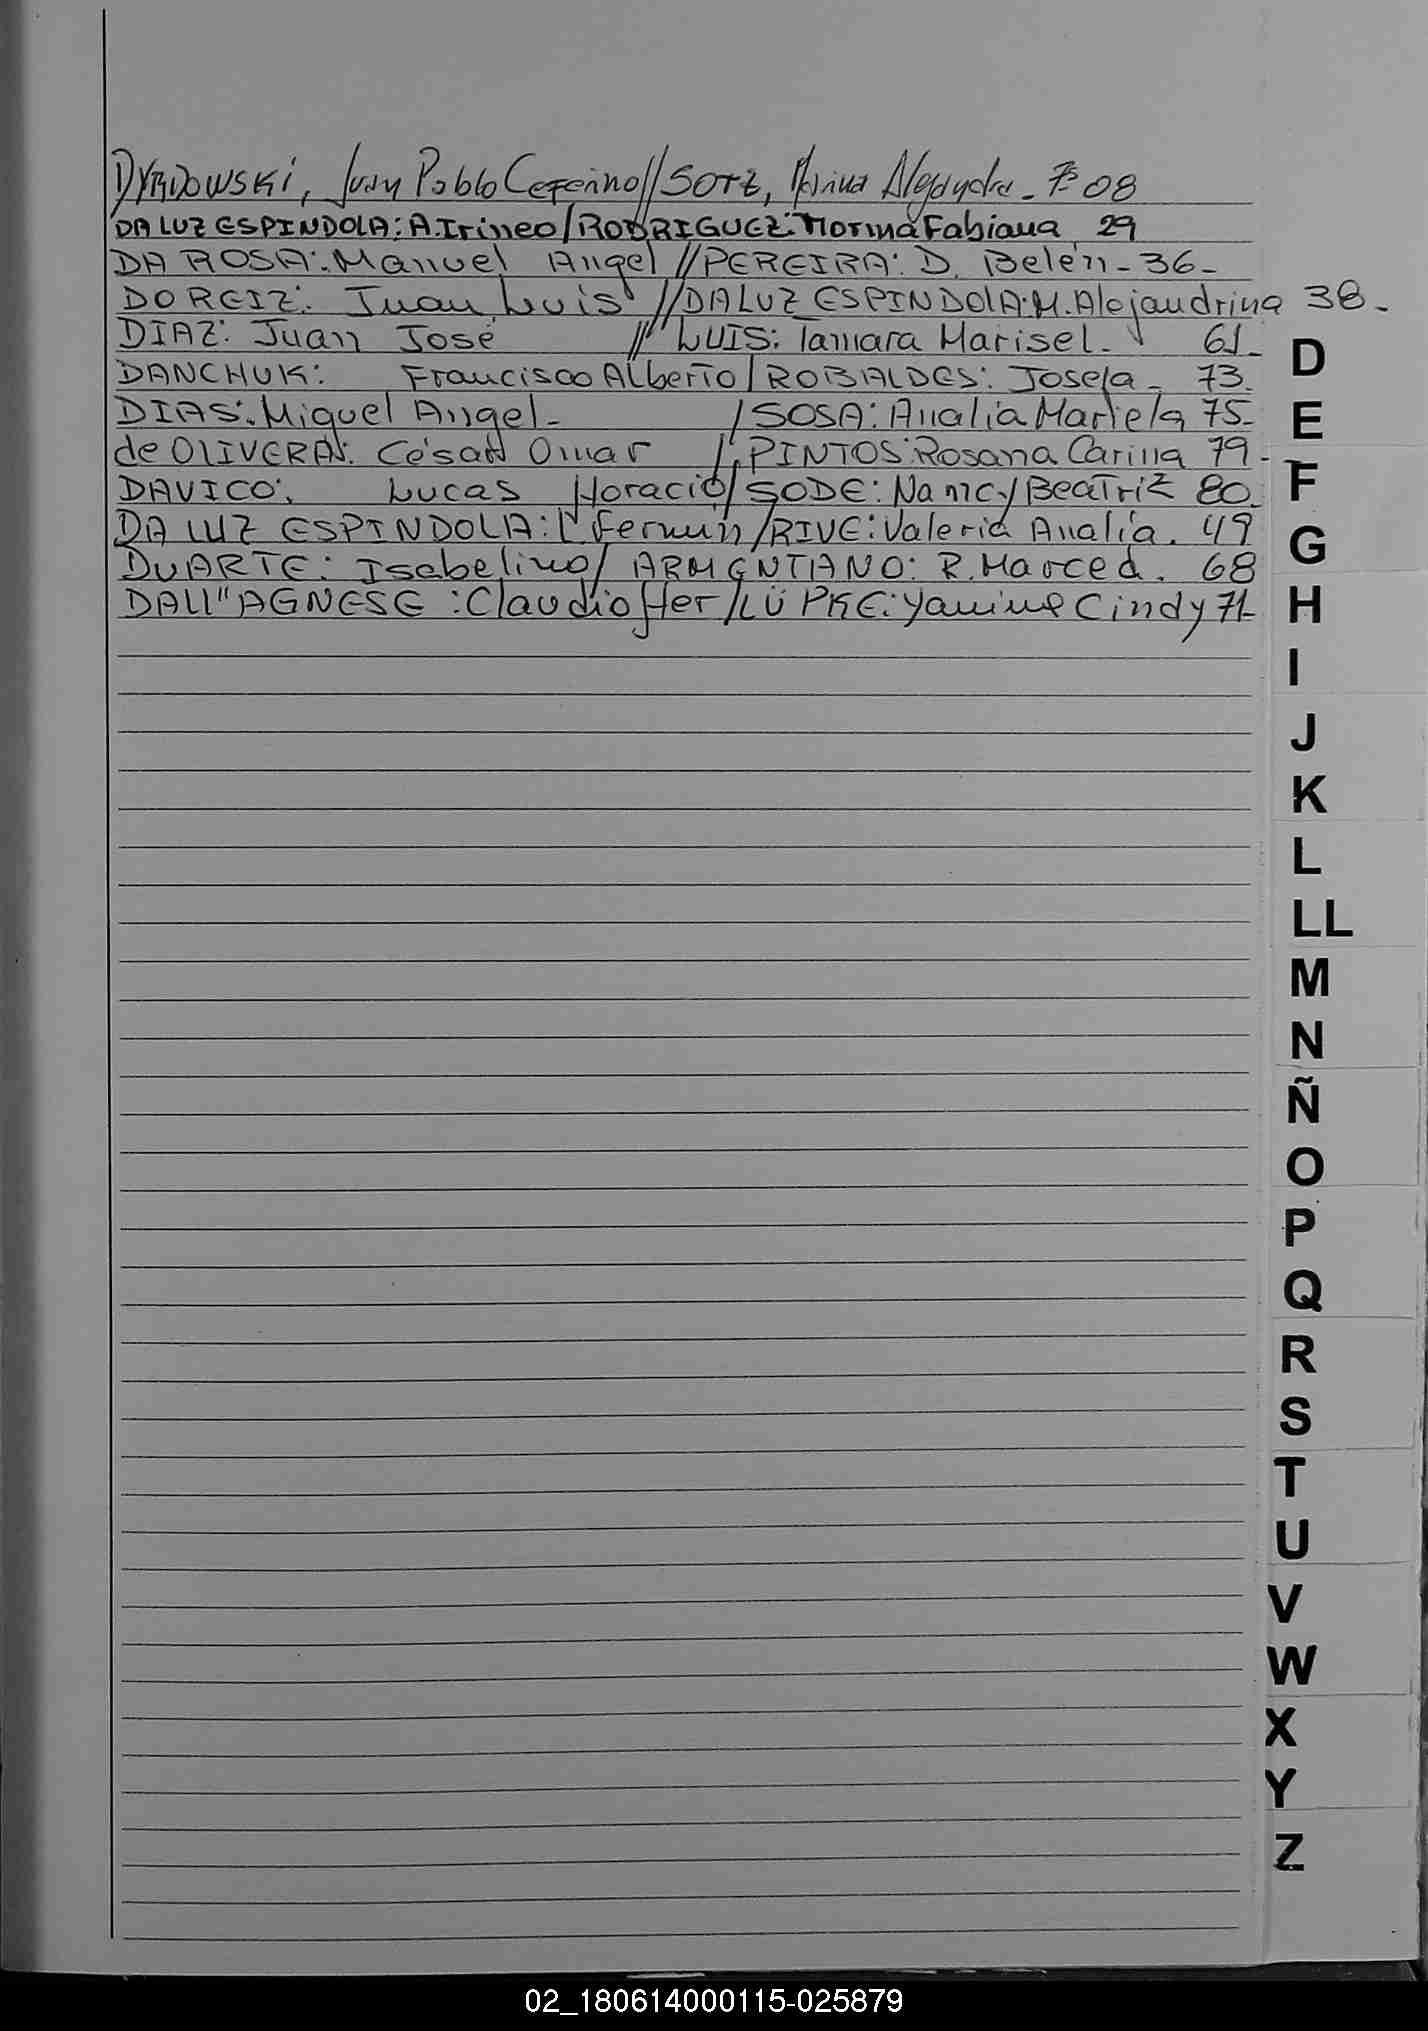 DYRDOWSKI, Juan Pablo Ceferino // SOTZ, Marina Alejandra - Fº 08
DA LUZ ESPINDOLA: A. Irineo / RODRIGUEZ: Norma Fabiana 29
DA ROSA: Manuel Angel // PEREIRA: D. Belén - 36 -
DOREIZ: Juan Luis // DA LUZ ESPINDOlA: M. Alejandrina 38 -
DIAZ: Juan José // LUIS: Tamara Marisel - 61 -
DANCHUK: Francisco Alberto / ROBALDES: Josefa - 73 -
DIAS: Miguel Angel - / SOSA: Analía Mariela 75 -
de OLIVERA: César Omar // PINTOS: Rosana Carina 79 -
DAVICO: Lucas Horacio / SODE: Nancy Beatriz 80 -
DA LUZ ESPINDOLA: L. Fermín / RIVE: Valeria Analía. 49
DUARTE: Isabelino / R. Marced. 68
DAll" AGNESE: Claudio Her / LÜPKE: Yanina Cindy 71 -
D
E
F
G
H
I
J
K
L
LL
M
N
Ñ
O
P
Q
R
S
T
U
V
W
X
Y
Z
02_180614000115-025879